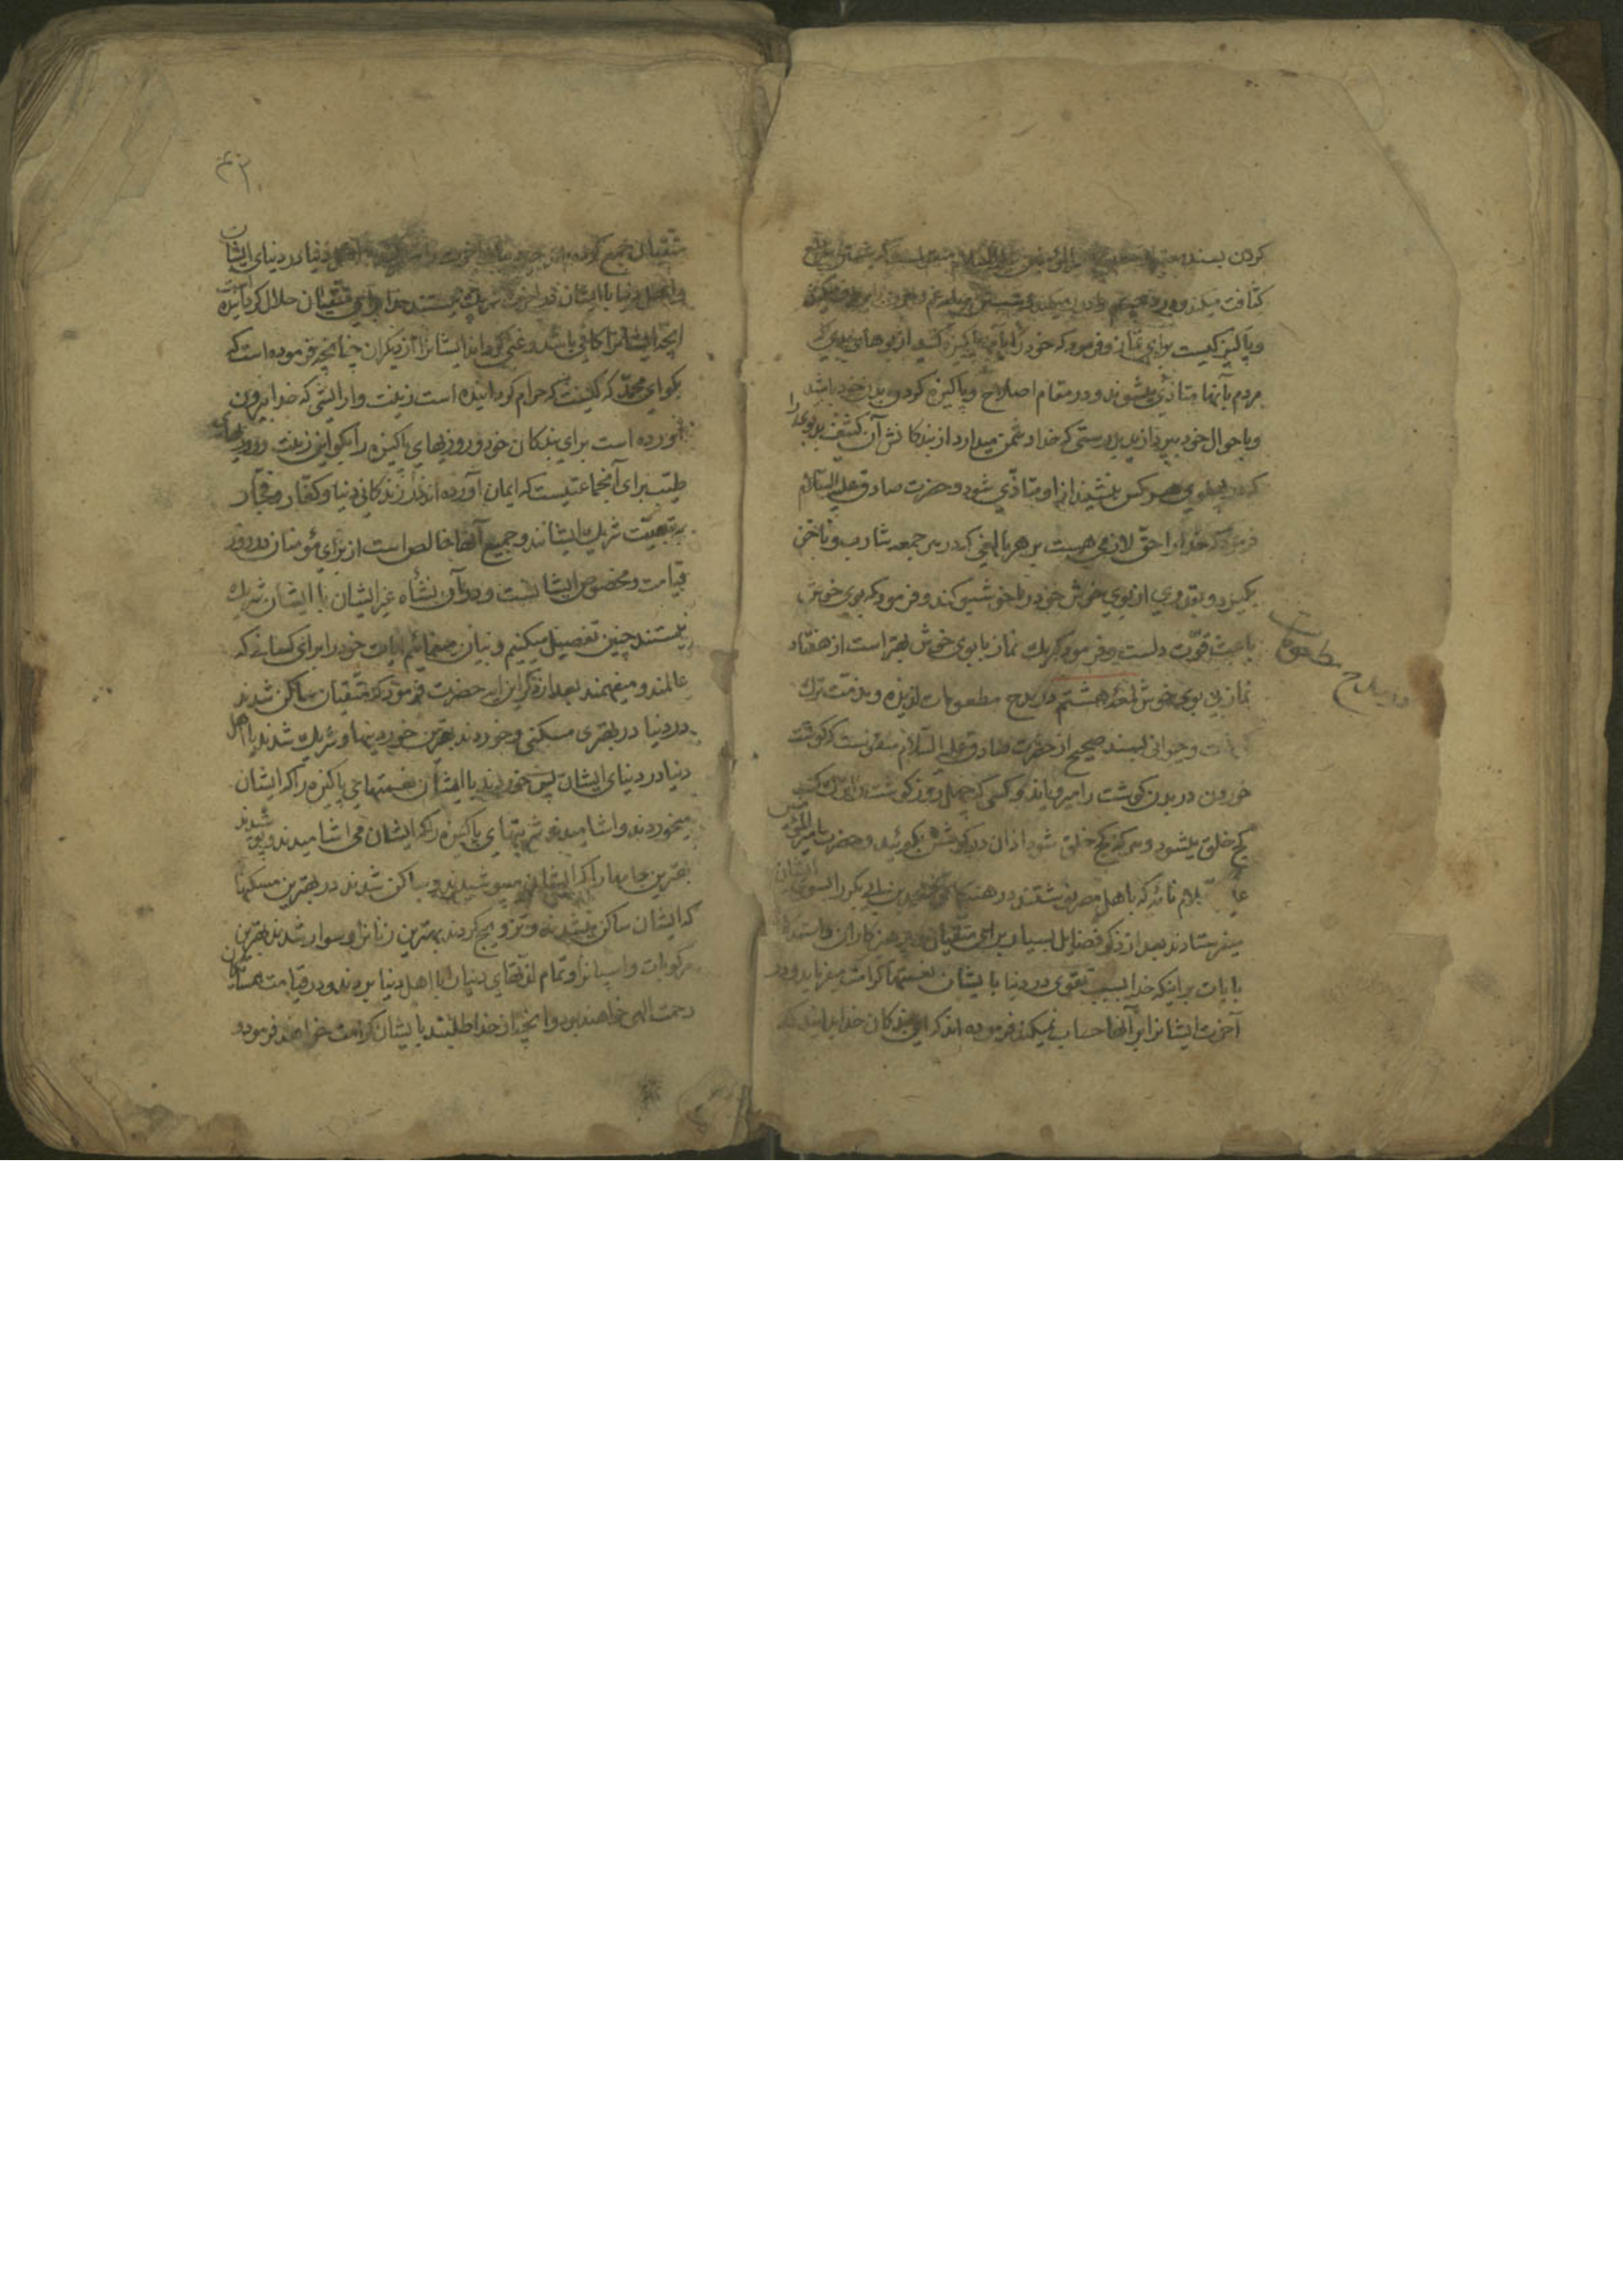 کردن بسند معتبر از حضرت امیر المؤمنین علیه السلام منقولست که شستن سر دفع
کثافت میکند و درد چشم را دور میکند و شستن جامه غم و اندوه را برطرف میکند
و پاکیزکیست برای نماز و فرمود که خود را بآب پاکیزه کنید از بوهای بدی که
مردم بآنها متاذی میشوند و در مقام اصلاح و پاکیزه کردن بدن خود باشید
و باحوال خود بپردازید بدرستی که خدا دشمن میدارد از بندکانش آن کثیف بدبوی را
که در پهلوی هر کس بنشیند از او متاذی شود و حضرت صادق علیه السلام
فرمود که خدا را حق لازمی هست بر هر بالغی که در هر جمعه شارب و ناخن
بگیرد و بقدری از بوی خوش خود را خوشبو کند و فرمود که بوی خوش
باعث قوت دلست و فرمود که یک نماز با بوی خوش بهتر است از هفتاد
نماز بی بوی خوش لمعهٔ هشتم در مدح مطعومات لذیذه و مذمت ترک
و حیوانی بسند صحیح از حضرت صادق علیه السلام منقولست که گوشت
خوردن در بدن گوشت را میرویاند و کسی که چهل روز گوشت را ترک کند
کج خلق میشود و هر که کج خلق شود اذان در گوشش بگوئید و حضرت امیر المؤمنین
علیه السلام نامه که باهل مصر نوشتند در هنگامی که محمد بن ابی بکر را بسوی ایشان
میفرستادند بعد از ذکر فضایل بسیار برای متقیان و پرهیزکاران و استشهاد
بآیات بر اینکه خدا بسبب تقوی در دنیا بایشان نعمتها کرامت میفرماید و در
آخرت ایشانرا بر آنها حساب نمیکند فرموده اند که ای بندکان خدا بدانید که
در مدح مطعومات
۴۳
متقیان جمع کرده اند دنیا و آخرت را شریک شدند با اهل دنیا در دنیای ایشان
و اهل دنیا با ایشان در آخرت شریک نیستند خدا برای متقیان حلال کردانیده است
انچه ایشانرا کافی باشد و غنی کرداند ایشانرا از دیکران چنانچه فرموده است که
بکو ای محمد که کیست که حرام کردانیده است زینت و آرایشی که خدا بیرون
آورده است برای بندکان خود و روزیهای پاکیزه را بکو این زینت و روزیهای
طیب برای آنجماعتیست که ایمان آورده اند در زندکانی دنیا و کفار و فجار
به تبعیت شریک ایشانند و جمیع آنها خالص است از برای مؤمنان در روز
قیامت و مخصوص ایشانست و در آن نشأه غیر ایشان با ایشان شریک
نیستند چنین تفصیل میکنیم و بیان مینمائیم آیات خود را برای کسانی که
عالمند و میفهمند بعد از ذکر این آیه حضرت فرمود که متقیان ساکن شدند
در دنیا در بهتری مسکنی و خوردند بهترین خوردنیها و شریک شدند با اهل
دنیا در دنیای ایشان پس خوردند با ایشان نعمتهای پاکیزه را که ایشان
میخوردند و آشامیدند شربتهای پاکیزه را که ایشان می آشامیدند و پوشیدند
بهترین جامها را که ایشان میپوشیدند و ساکن شدند در بهترین مسکنها
که ایشان ساکن میشدند و تزویج کردند بهترین زنانرا و سوار شدند بهترین
مرکوبات و اسپانرا و تمام لذتهای دنیا را با اهل دنیا بردند و در قیامت همسایکان
رحمت الهی خواهند بود و انچه از خدا طلبند بایشان کرامت خواهد فرمود و